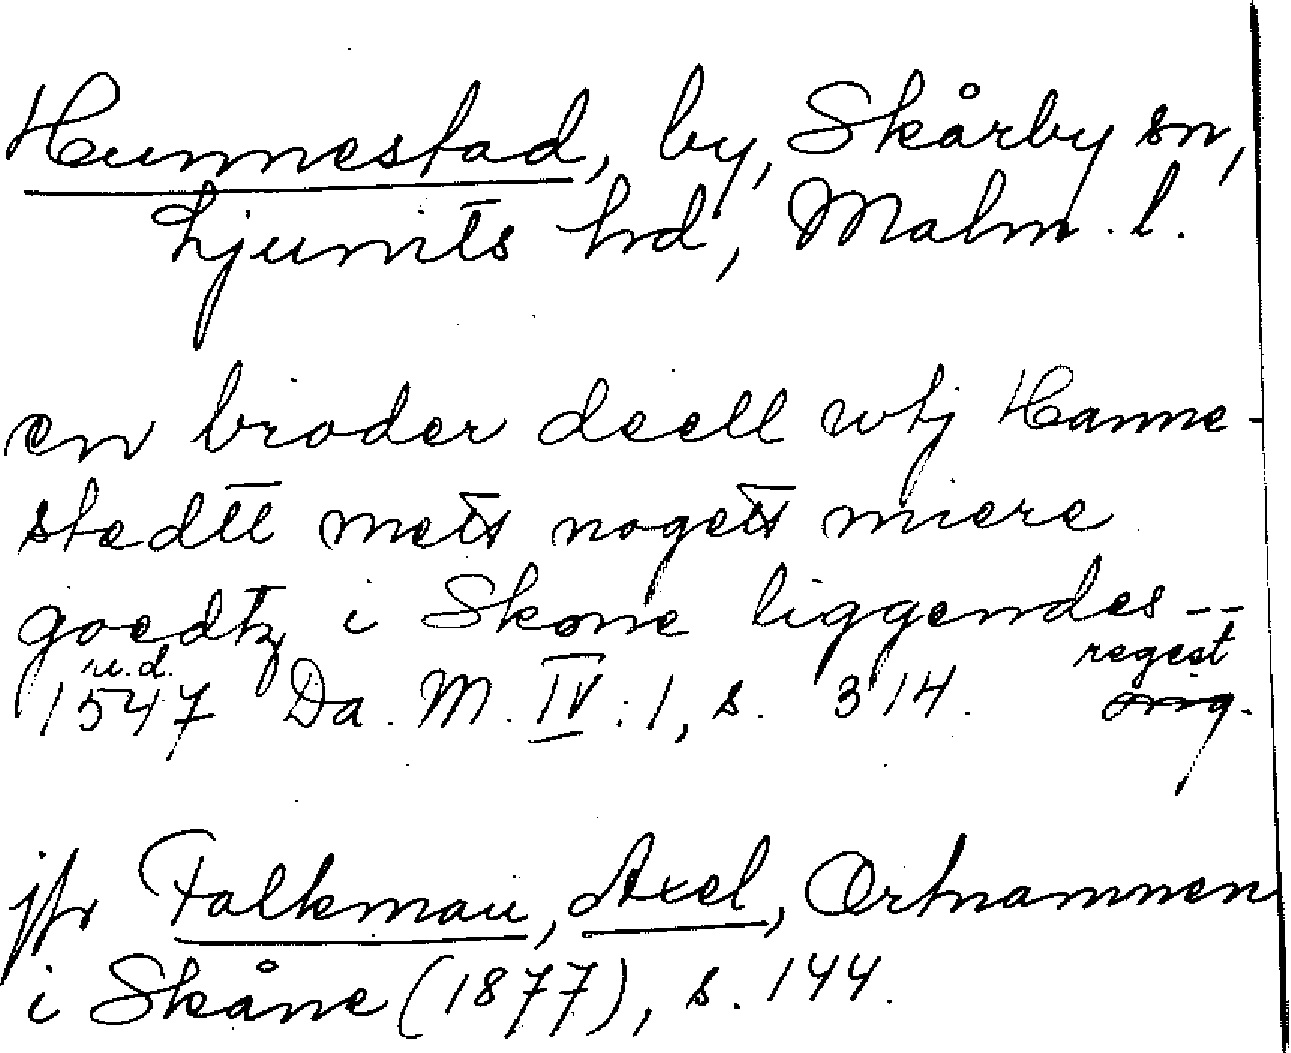 Hunnestad, by, Skårby sn,
Ljunits hd, Malm. l.
en broder deell wtj Hanne-
stedtt mett nogett miere
goedtz i Skone liggendes --
u.d. regest
1547 Da. M. IV:1, s. 314. orig.
jfr Falkman, Axel, Ortnamnen
i Skåne (1877), s. 144.